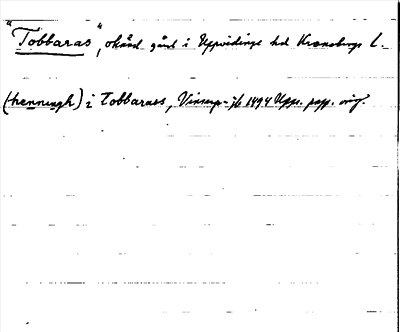 "Tobbaras", okänd gård i Uppvidinge hd Kronobergs l.
(henningh) i Tobbaras, Vinsarp- jb 1494 Upps. papp. orig.